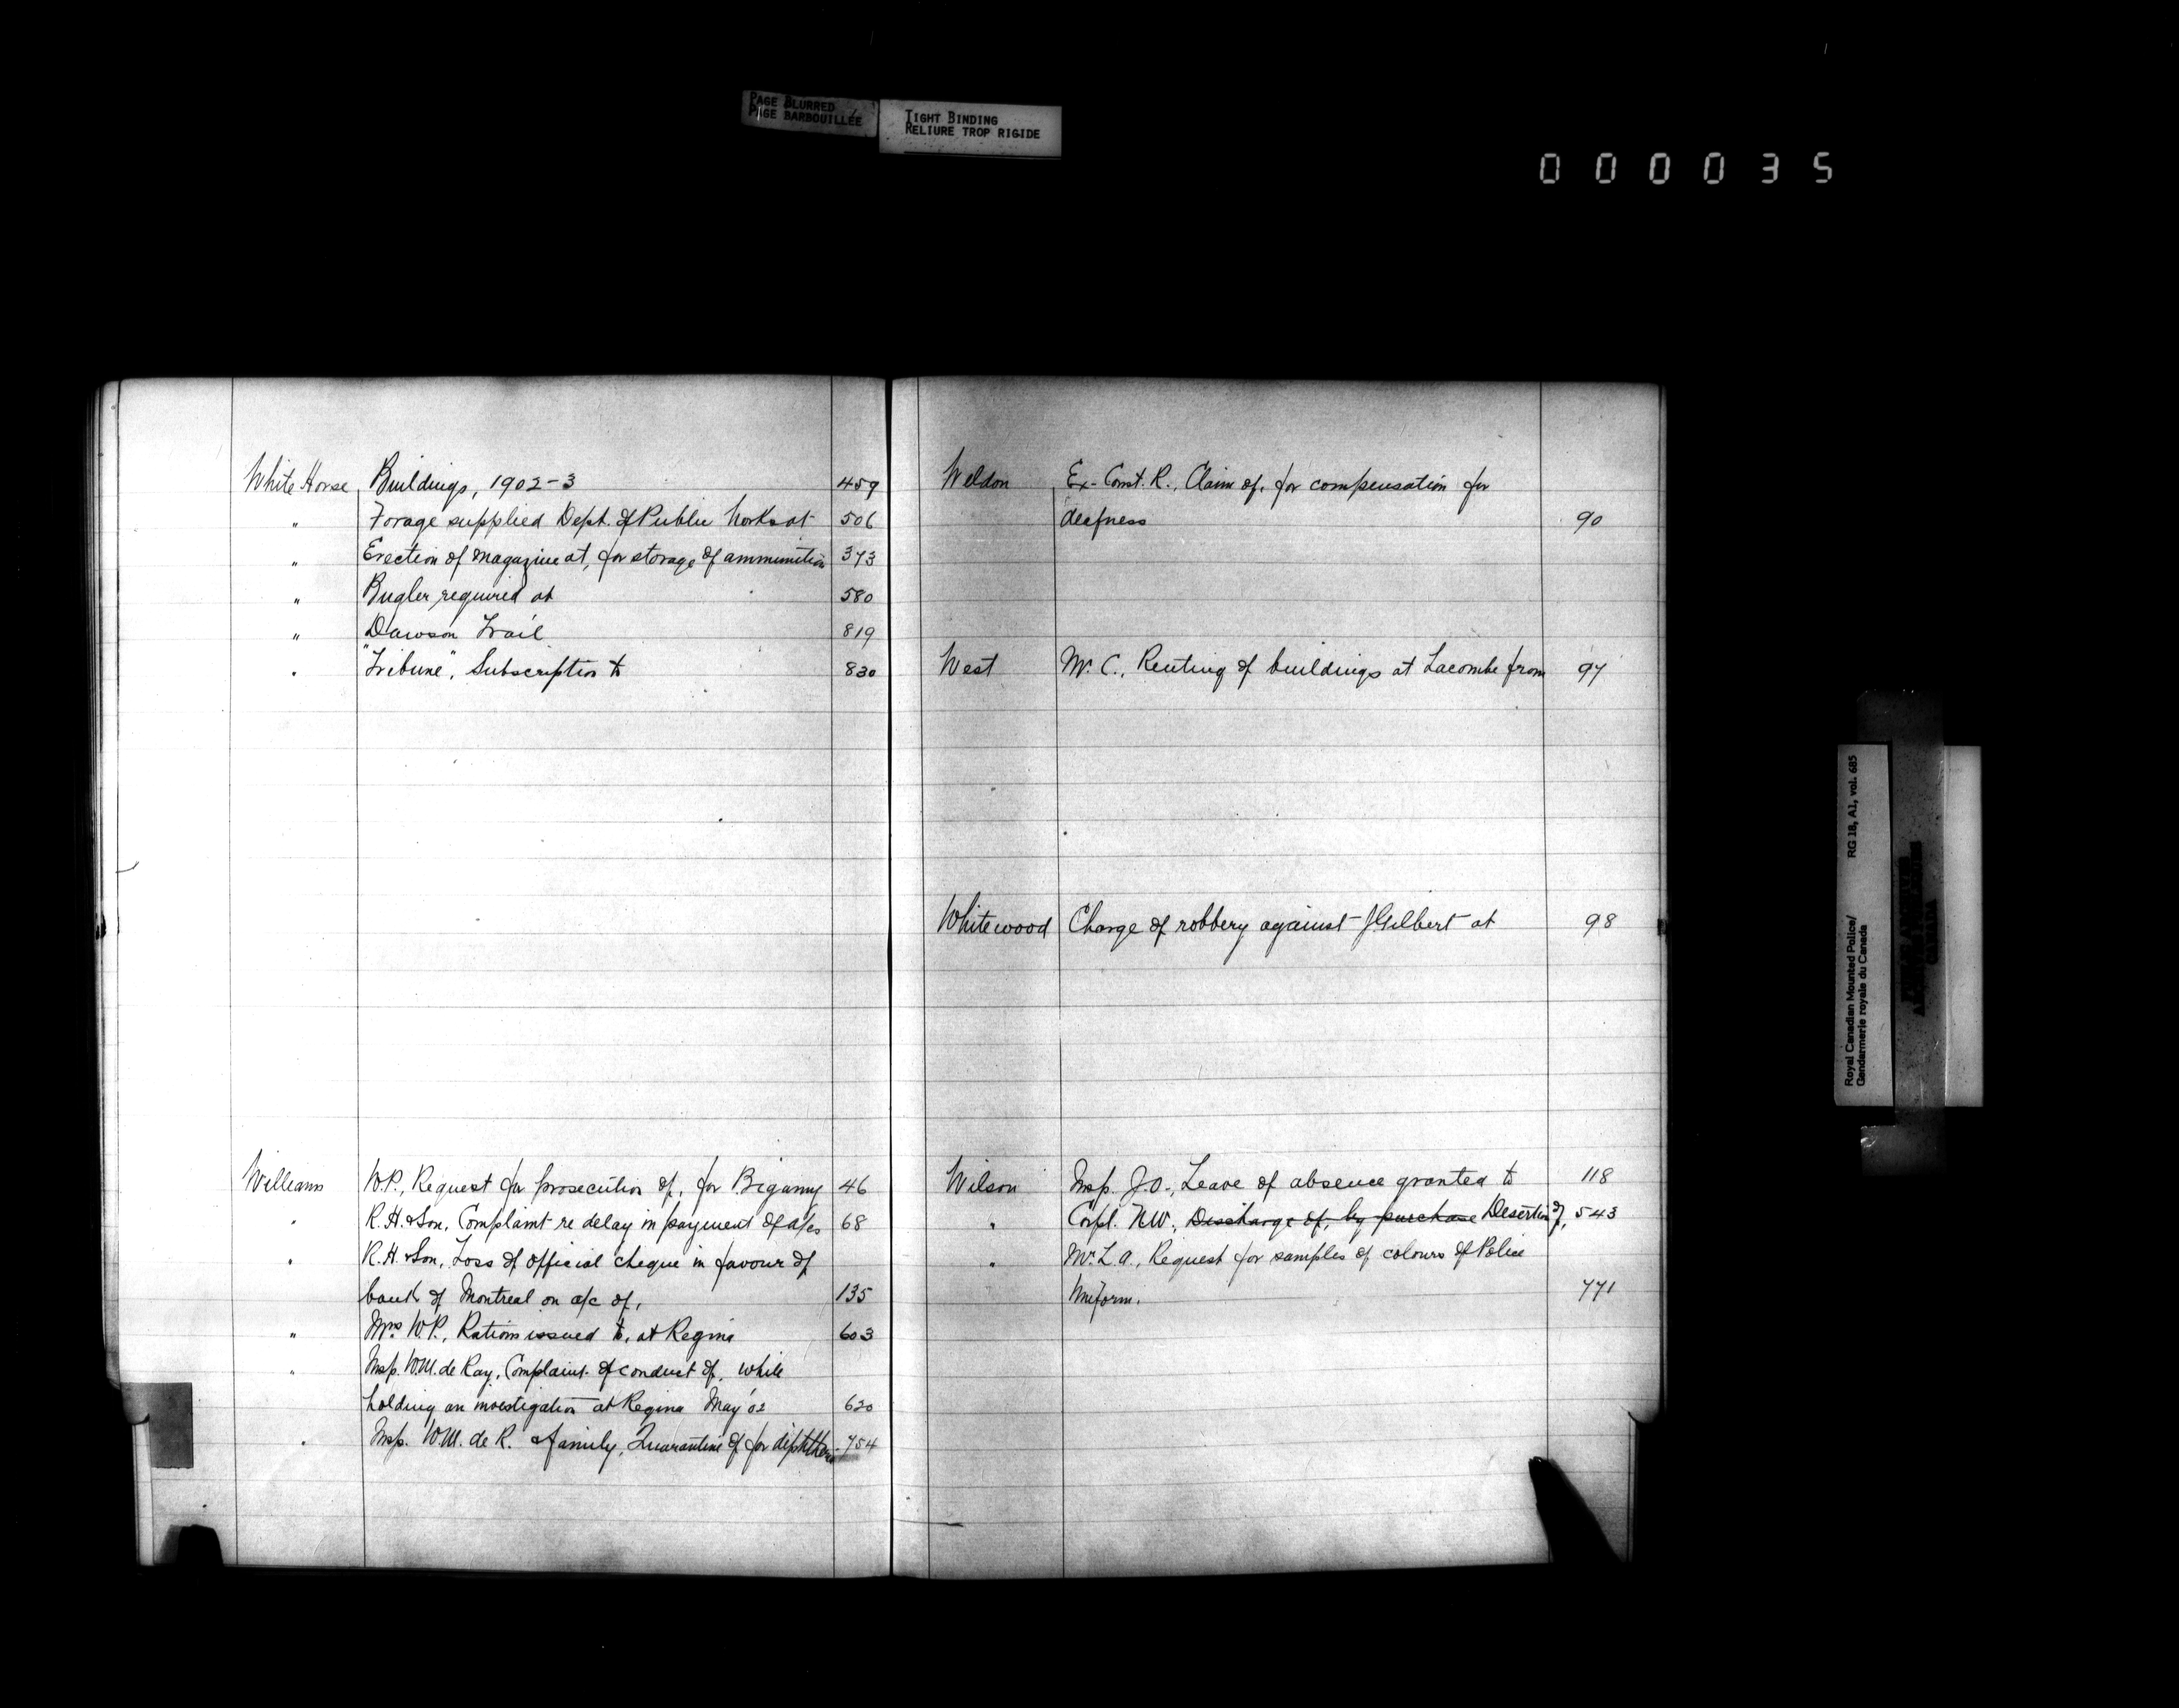 PAGE BLURRED
PAGE BARBOUILLÉE
TIGHT BINDING
RELIURE TROP RIGIDE
000035
White Horse Buildings, 1902-3 459
" Forage supplied Dept. of Public Works at 506
" Erection of magazine at, for storage of ammunition 373
" Bugler required at 580
" Dawson Trail 819
" "Tribune", Subscription to 830
Williams W.P., Request for prosecution of, for Bigamy 46
" R.H. & Son, Complaint re delay in payment of a/cs 68
" R.H. & Son, Loss of official cheque in favour of
bank of Montreal on a/c of, 135
" Mrs W.P., Rations issued to, at Regina 603
" Insp. W.M. de Ray, Complaint of conduct of, while
holding an investigation at Regina May '02 620
" Insp. W.M. de R. & family, Quarantine of for diphtheria 754
Weldon Ex-Const. R., Claim of, for compensation for
deafness 90
West Mr. C., Renting of buildings at Lacombe from 97
Whitewood Charge of robbery against J Gilbert at 98
Wilson Insp. J.O., Leave of absence granted to 118
" Corpl. N.W., Discharge of, by purchase Desertion of, 543
" Mr. L.A., Request for samples of colours of Police
Uniform. 771
Royal Canadian Mounted Police/ RG 18, A1, vol. 685
Gendarmerie royale du Canada
CANADA